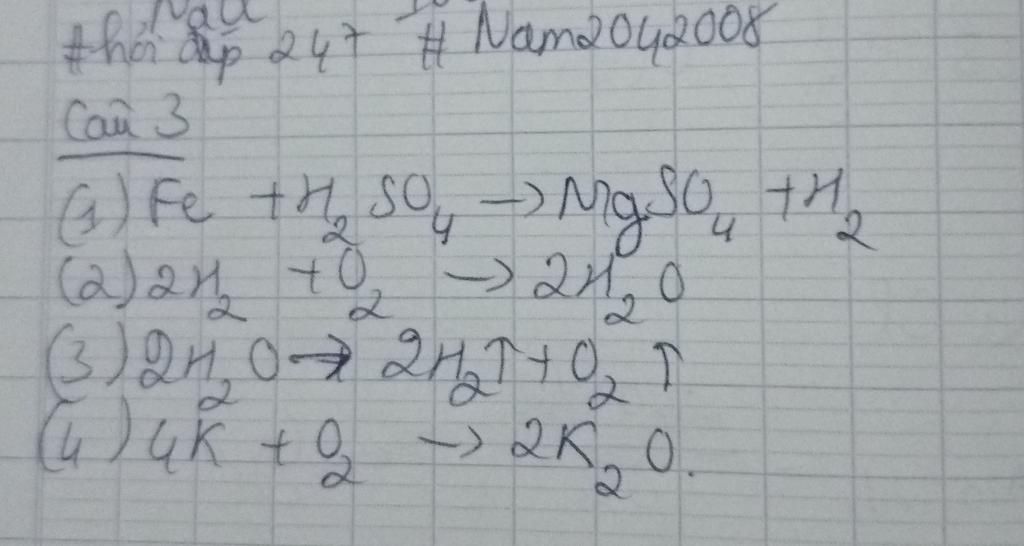 #hỏi đáp 247 # Nam2042008
Câu 3
(1) Fe + H₂SO₄ → MgSO₄ + H₂
(2) 2H₂ + O₂ → 2H₂O
(3) 2H₂O → 2H₂↑ + O₂↑
(4) 4K + O₂ → 2K₂O.